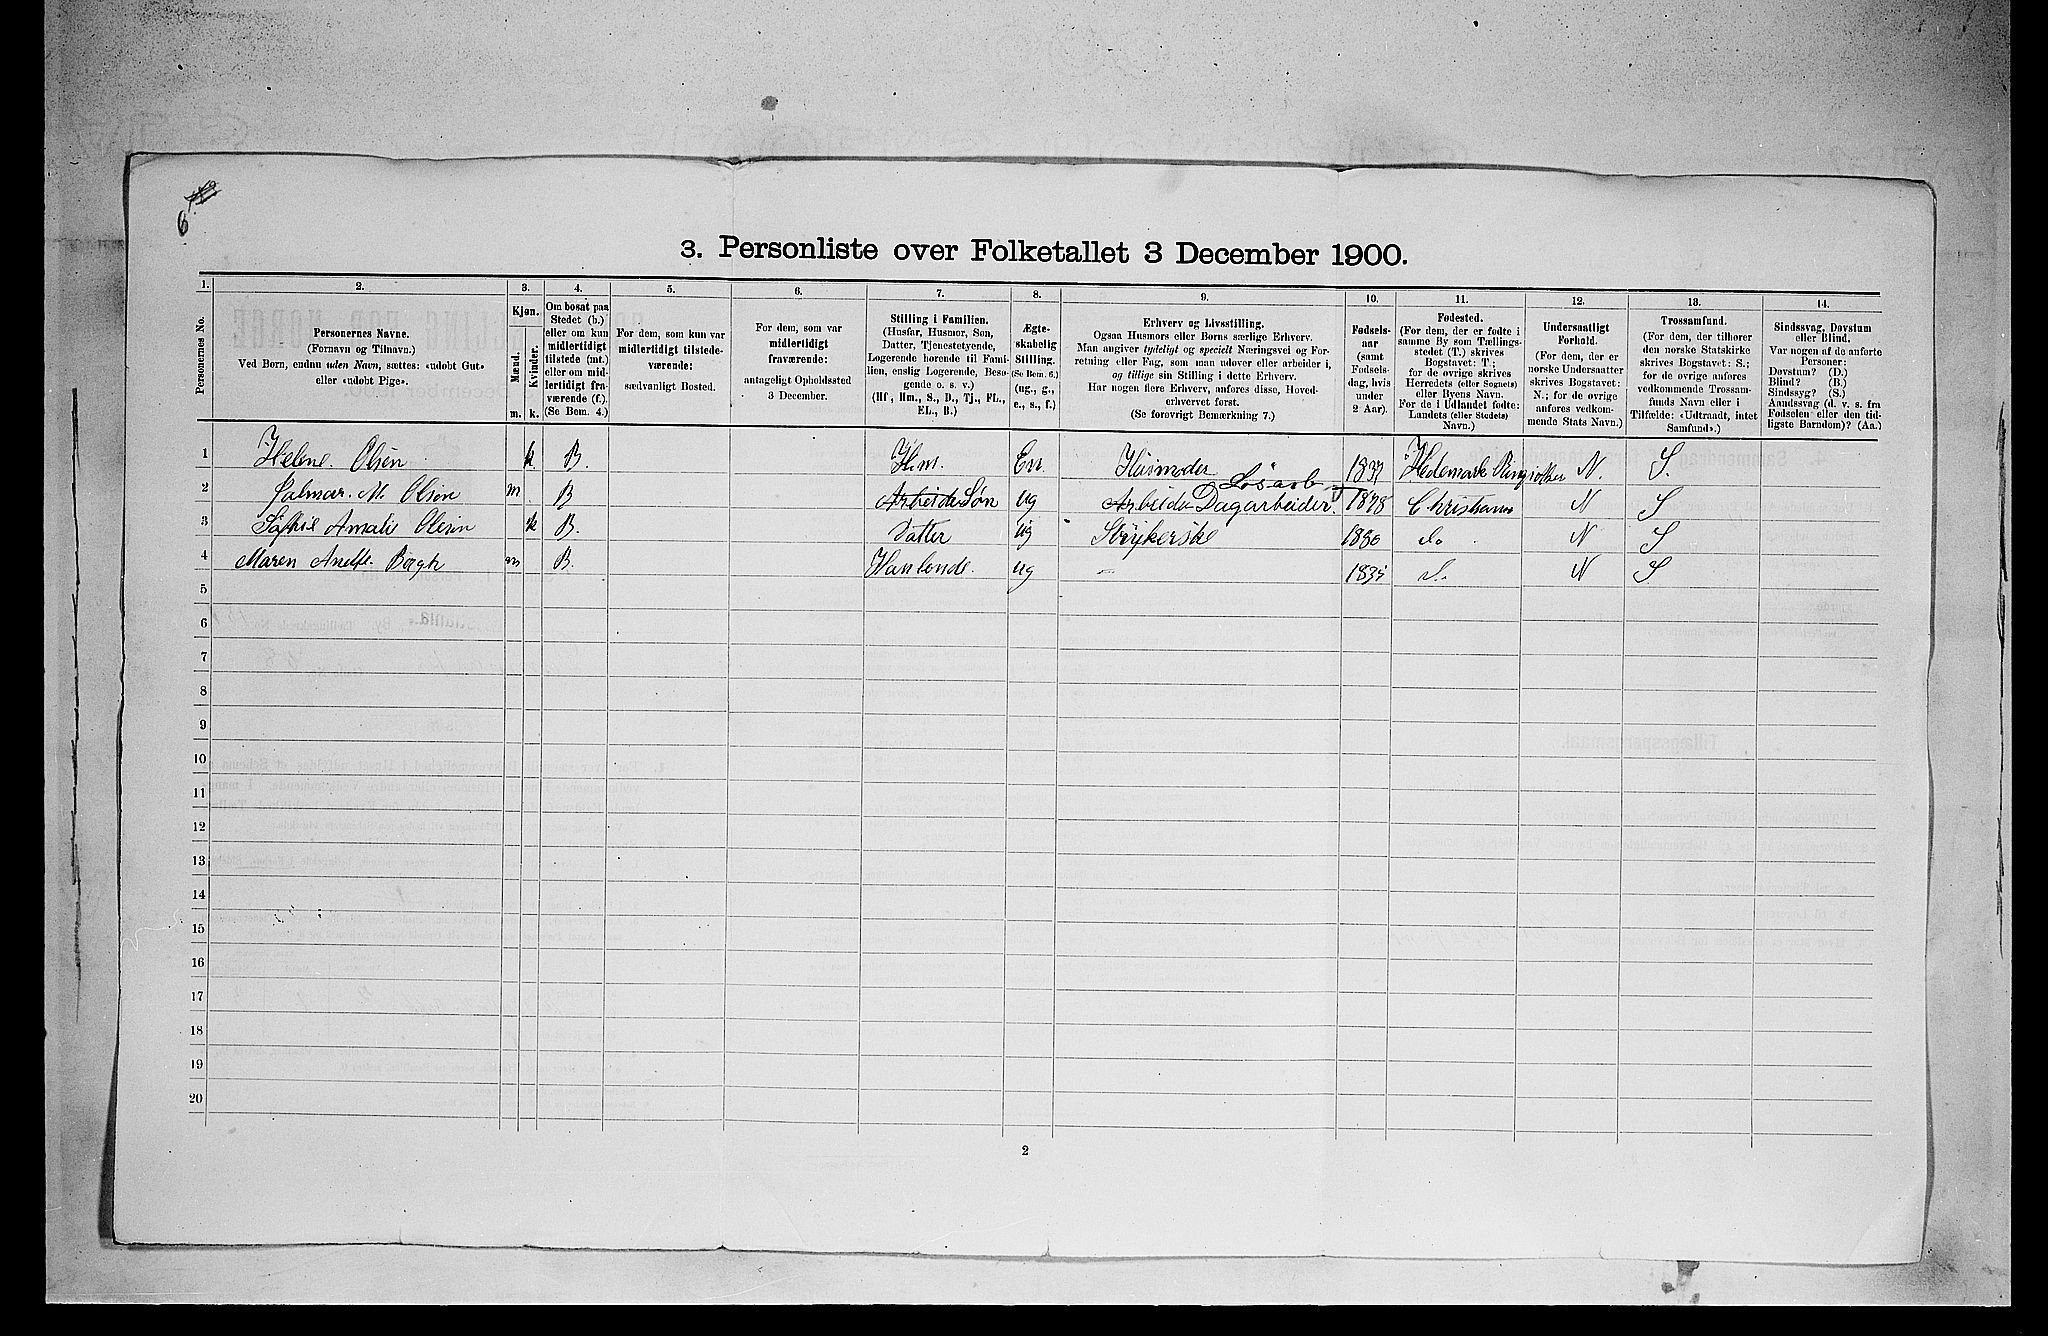 6.
3. Personliste over Folketallet 3 December 1900.
1. 2. 3. 4. 5. 6. 7. 8. 9. 10. 11. 12. 13. 14.
Personernes No.
Personernes Navne.
(Fornavn og Tilnavn.)
Ved Børn, endnu uden Navn, sættes: «udøbt Gut»
eller «udøbt Pige».
Kjøn.
Mænd.
Kvinder.
m. k.
Om bosat paa
Stedet (b.)
eller om kun
midlertidigt
tilstede (mt.)
eller om mid-
lertidigt fra-
værende (f.).
(Se Bem. 4.)
For dem, som kun var
midlertidigt tilstede-
værende:
sædvanligt Bosted.
For dem, som var
midlertidigt
fraværende:
antageligt Opholdssted
3 December.
Stilling i Familien.
(Husfar, Husmor, Søn,
Datter, Tjenestetyende,
Logerende hørende til Fami-
lien, enslig Logerende, Besø-
gende o. s. v.)
(Hf, Hm., S., D., Tj., FL.,
EL., B.)
Ægte-
skabelig
Stilling.
(Se Bem. 6.)
(ug., g.,
e., s., f.)
Erhverv og Livsstilling.
Ogsaa Husmors eller Børns særlige Erhverv.
Man angiver tydeligt og specielt Næringsvei og For-
retning eller Fag, som man udøver eller arbeider i,
og tillige sin Stilling i dette Erhverv.
Har nogen flere Erhverv, anføres disse, Hoved-
erhvervet først.
(Se forøvrigt Bemærkning 7.)
Fødsels-
aar
(samt
Fødsels-
dag, hvis
under
2 Aar).
Fødested.
(For dem, der er fødte i
samme By som Tællings-
stedet (T.) skrives
Bogstavet: T;
for de øvrige skrives
Herredets (eller Sognets)
eller Byens Navn.
For de i Udlandet fødte:
Landets (eller Stedets)
Navn.)
Undersaatligt
Forhold.
(For dem, der er
norske Undersaatter
skrives Bogstavet:
N.; for de øvrige
anføres vedkom-
mende Stats Navn.)
Trossamfund.
(For dem, der tilhører
den norske Statskirke
skrives Bogstavet: S.;
for de øvrige anføres
vedkommende Trossam-
funds Navn eller i
Tilfælde: «Udtraadt, intet
Samfund».)
Sindssvag, Døvstum
eller Blind.
Var nogen af de anførte
Personer:
Døvstum? (D.)
Blind? (B.)
Sindssyg? (S.)
Aandssvag (d. v. s. fra
Fødselen eller den tid-
ligste Barndom)? (Aa.)
1 Helene. Olsen k B. Hm. En Husmoder Hedemark N. S.
2 M. Olsen m B Arbeide Søn ug Arbeide Dagarbeider. Løsarb 1878 Christiania N S
3 Sofhie Amalie Olsen k B. Datter ug Strykerske do N S
4 Maren m B. ug – do N S
5
6
7
8
9
10
11
12
13
14
15
16
17
18
19
20
2